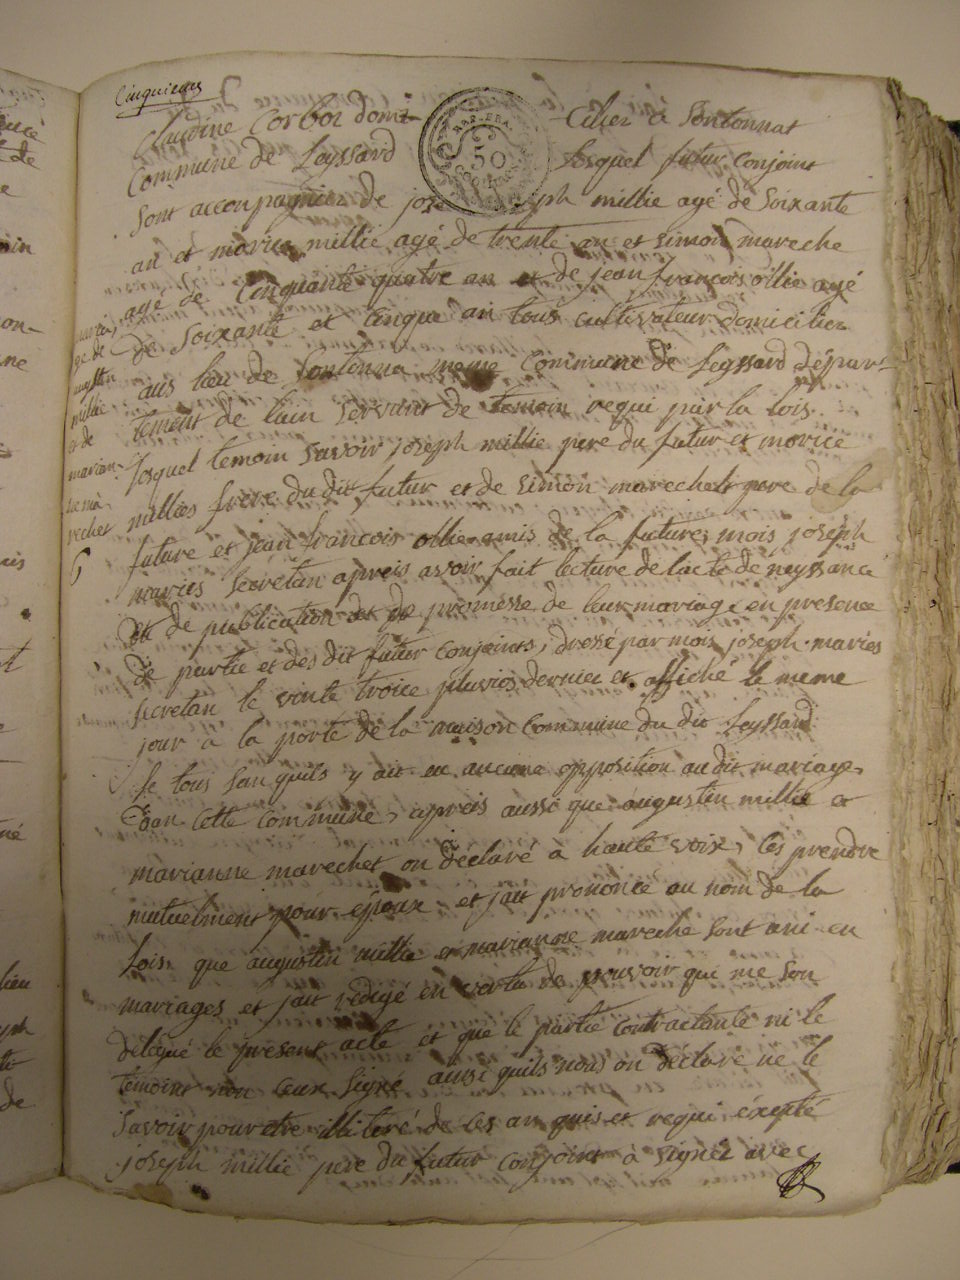 Cinquieme
Claudine Corboz domi- cilier a Sontonnat
Commune de Leyssard lesquel futur conjoint
Sont accompagnier de jose ph millie agé de Soixante
an et maries millie agé de trente an et simon mareche
agé de Cinquante quatre an et de jean francois ollie agé
de Soixante et Cinque an tous cultivateur domicilier
aus lieu de Sontonna meme Commune de Leyssard départ-
tement de lain Servant de temoin requi par la lois
lesquel temoin Savoir joseph millie pere du futur et morice
millies frere du dit futur et de simon marechet pere de la
future et jean francois ollie amis de la future, mois joseph
maries Secretan apreis avoir fait lecture de lacte de neyssance
et de publication et de promesse de leur mariage en presence
de partie et des dit futur conjoints, dressé par mois joseph maries
secretan le vinte troice pluvios dernier et affiché le meme
jour a la porte de la maison Commune du dit Leyssard
le tous San quils y ait eu aucune opposition audit mariage
dan cette commune, apreis aussi que augustin millie et
marianne marechet on déclaré à haute voix, les prendre
mutuelment pour epoux et jait prononcé au nom de la
Lois que augustin millie et marianne mareche sont uni en
mariages et jait redigé en vertu de pouvoir qui me son
delegué le present acte et que le partie Contractante ni le
temoint non ceux Signé ainsi quils nous on déclaré ne le
Savoir pour etre illiteré de ces an quis et requi éxepte
joseph millie pere du futur conjoint à signer avec
millie
et de
marian-
ne ma
rechet
6
REP. FRA.
50